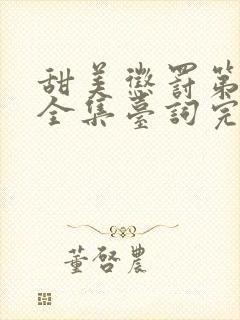 甜美懲罰第
全集臺詞完
董啓農